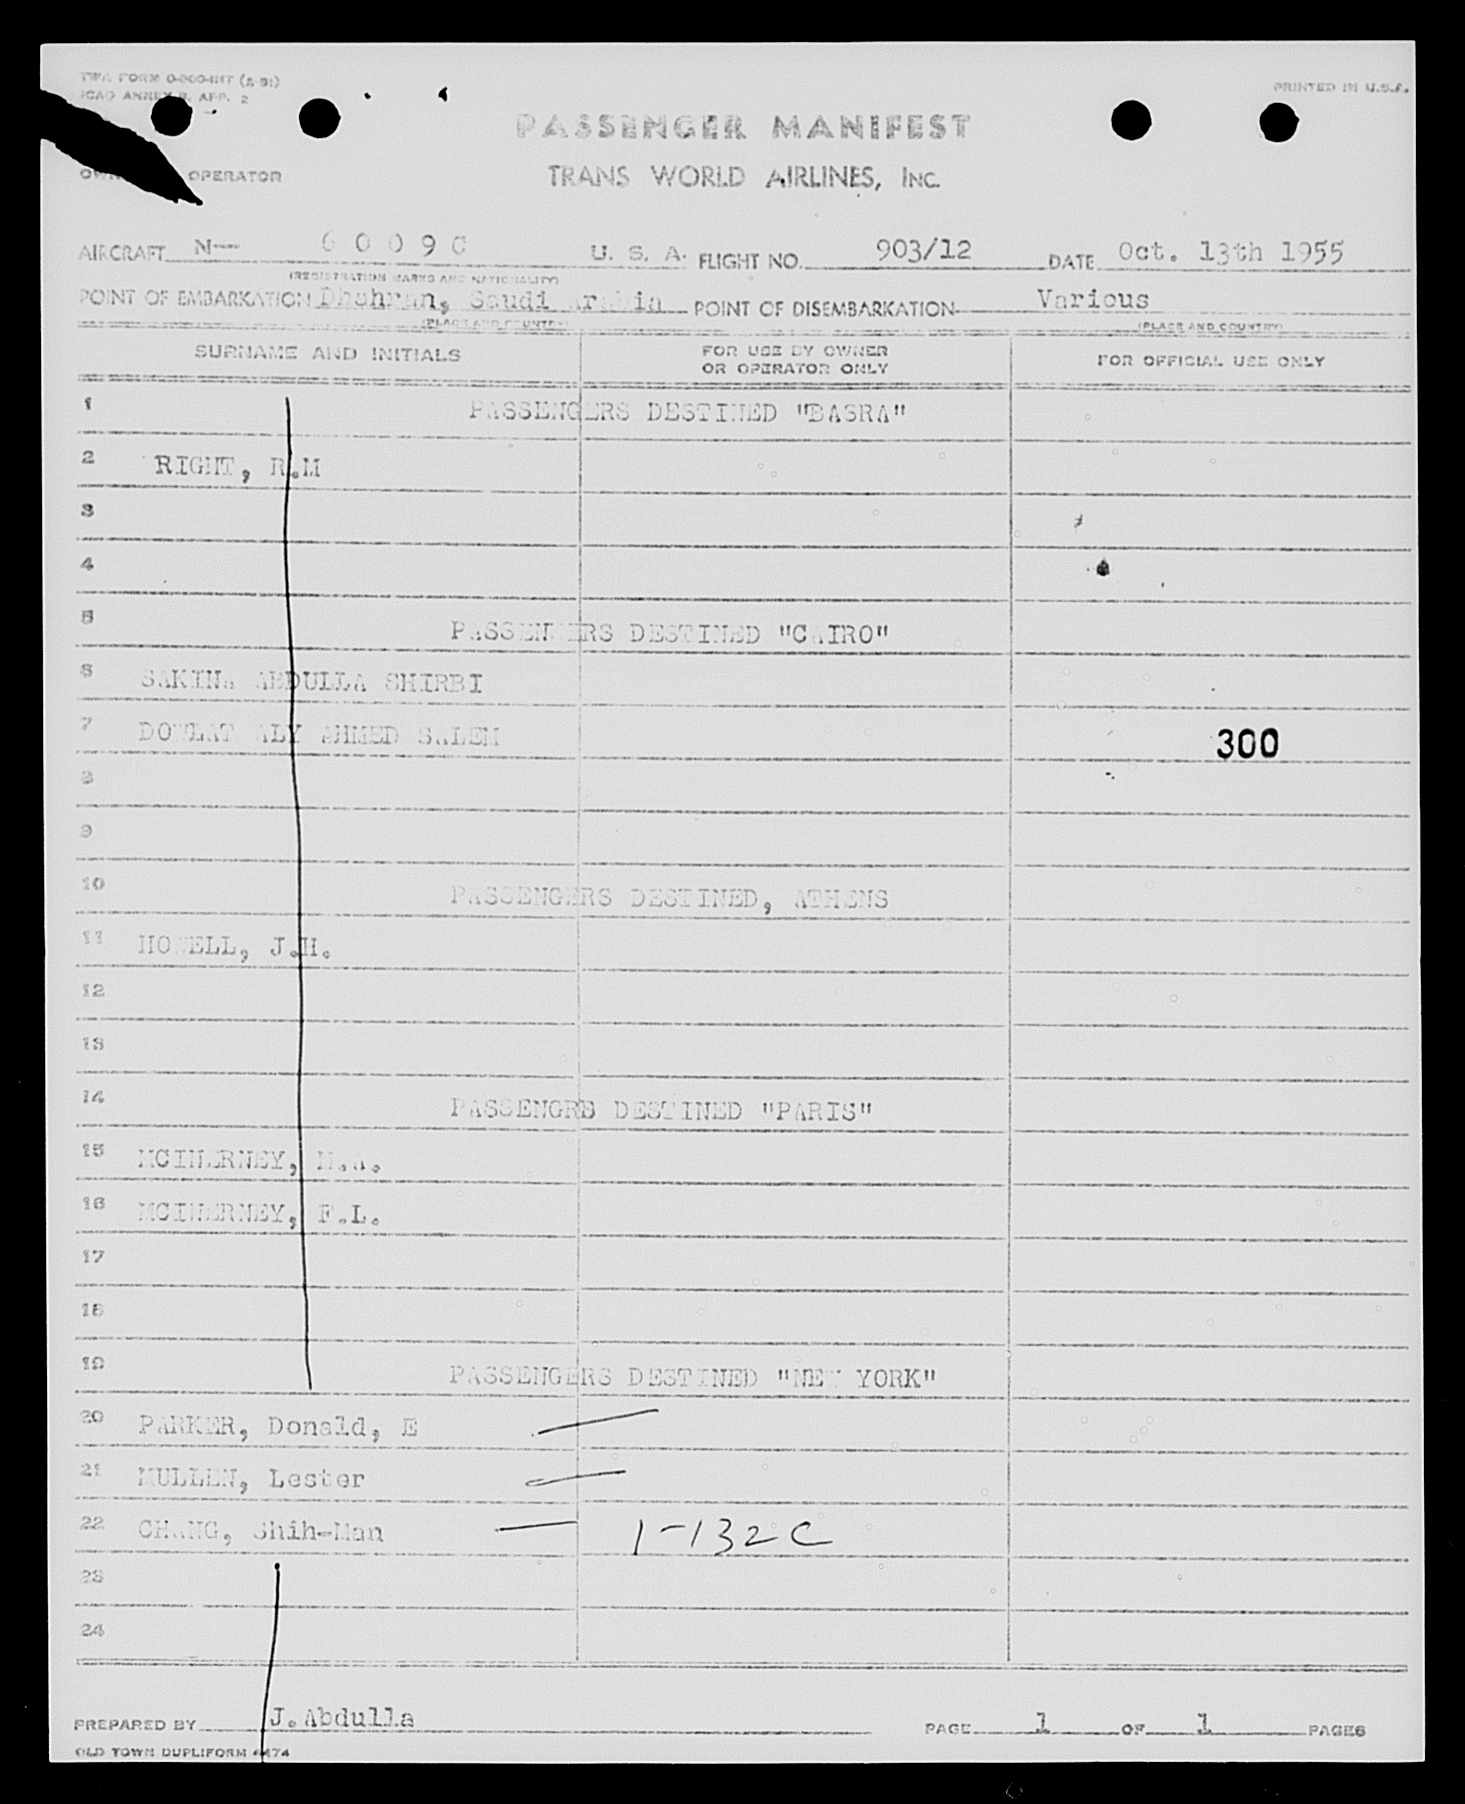 TWA FORM
ICAO ANNEX 9, APP. 2
PRINTED IN U.S.A.
PASSENGER MANIFEST
OPERATOR
TRANS WORLD AIRLINES, INC.
AIRCRAFT N-- 6009C U. S. A. FLIGHT NO. 903/12 DATE Oct. 13th 1955
(REGISTRATION MARKS AND NATIONALITY)
POINT OF EMBARKATION Dhahran, Saudi Arabia POINT OF DISEMBARKATION Various
(PLACE AND COUNTRY) (PLACE AND COUNTRY)
SURNAME AND INITIALS FOR USE BY OWNER OR OPERATOR ONLY FOR OFFICIAL USE ONLY
1 PASSENGERS DESTINED "BASRA"
2 RIGHT, R.M
3
4
5 PASSENGERS DESTINED "CAIRO"
6 SAKINA ABDULLA SHIRBI
7 DOWLAT ALY AHMED SALEM 300
8
9
10 PASSENGERS DESTINED, ATHENS
11 HOWELL, J.H.
12
13
14 PASSENGRS DESTINED "PARIS"
15 MCINERNEY,
16 MCINERNEY, F.L.
17
18
19 PASSENGERS DESTINED "NEW YORK"
20 PARKER, Donald, E
21 MULLEN, Lester
22 CHANG, Shih-Man 1-132C
23
24
PREPARED BY J.Abdulla PAGE 1 OF 1 PAGES
OLD TOWN DUPLIFORM